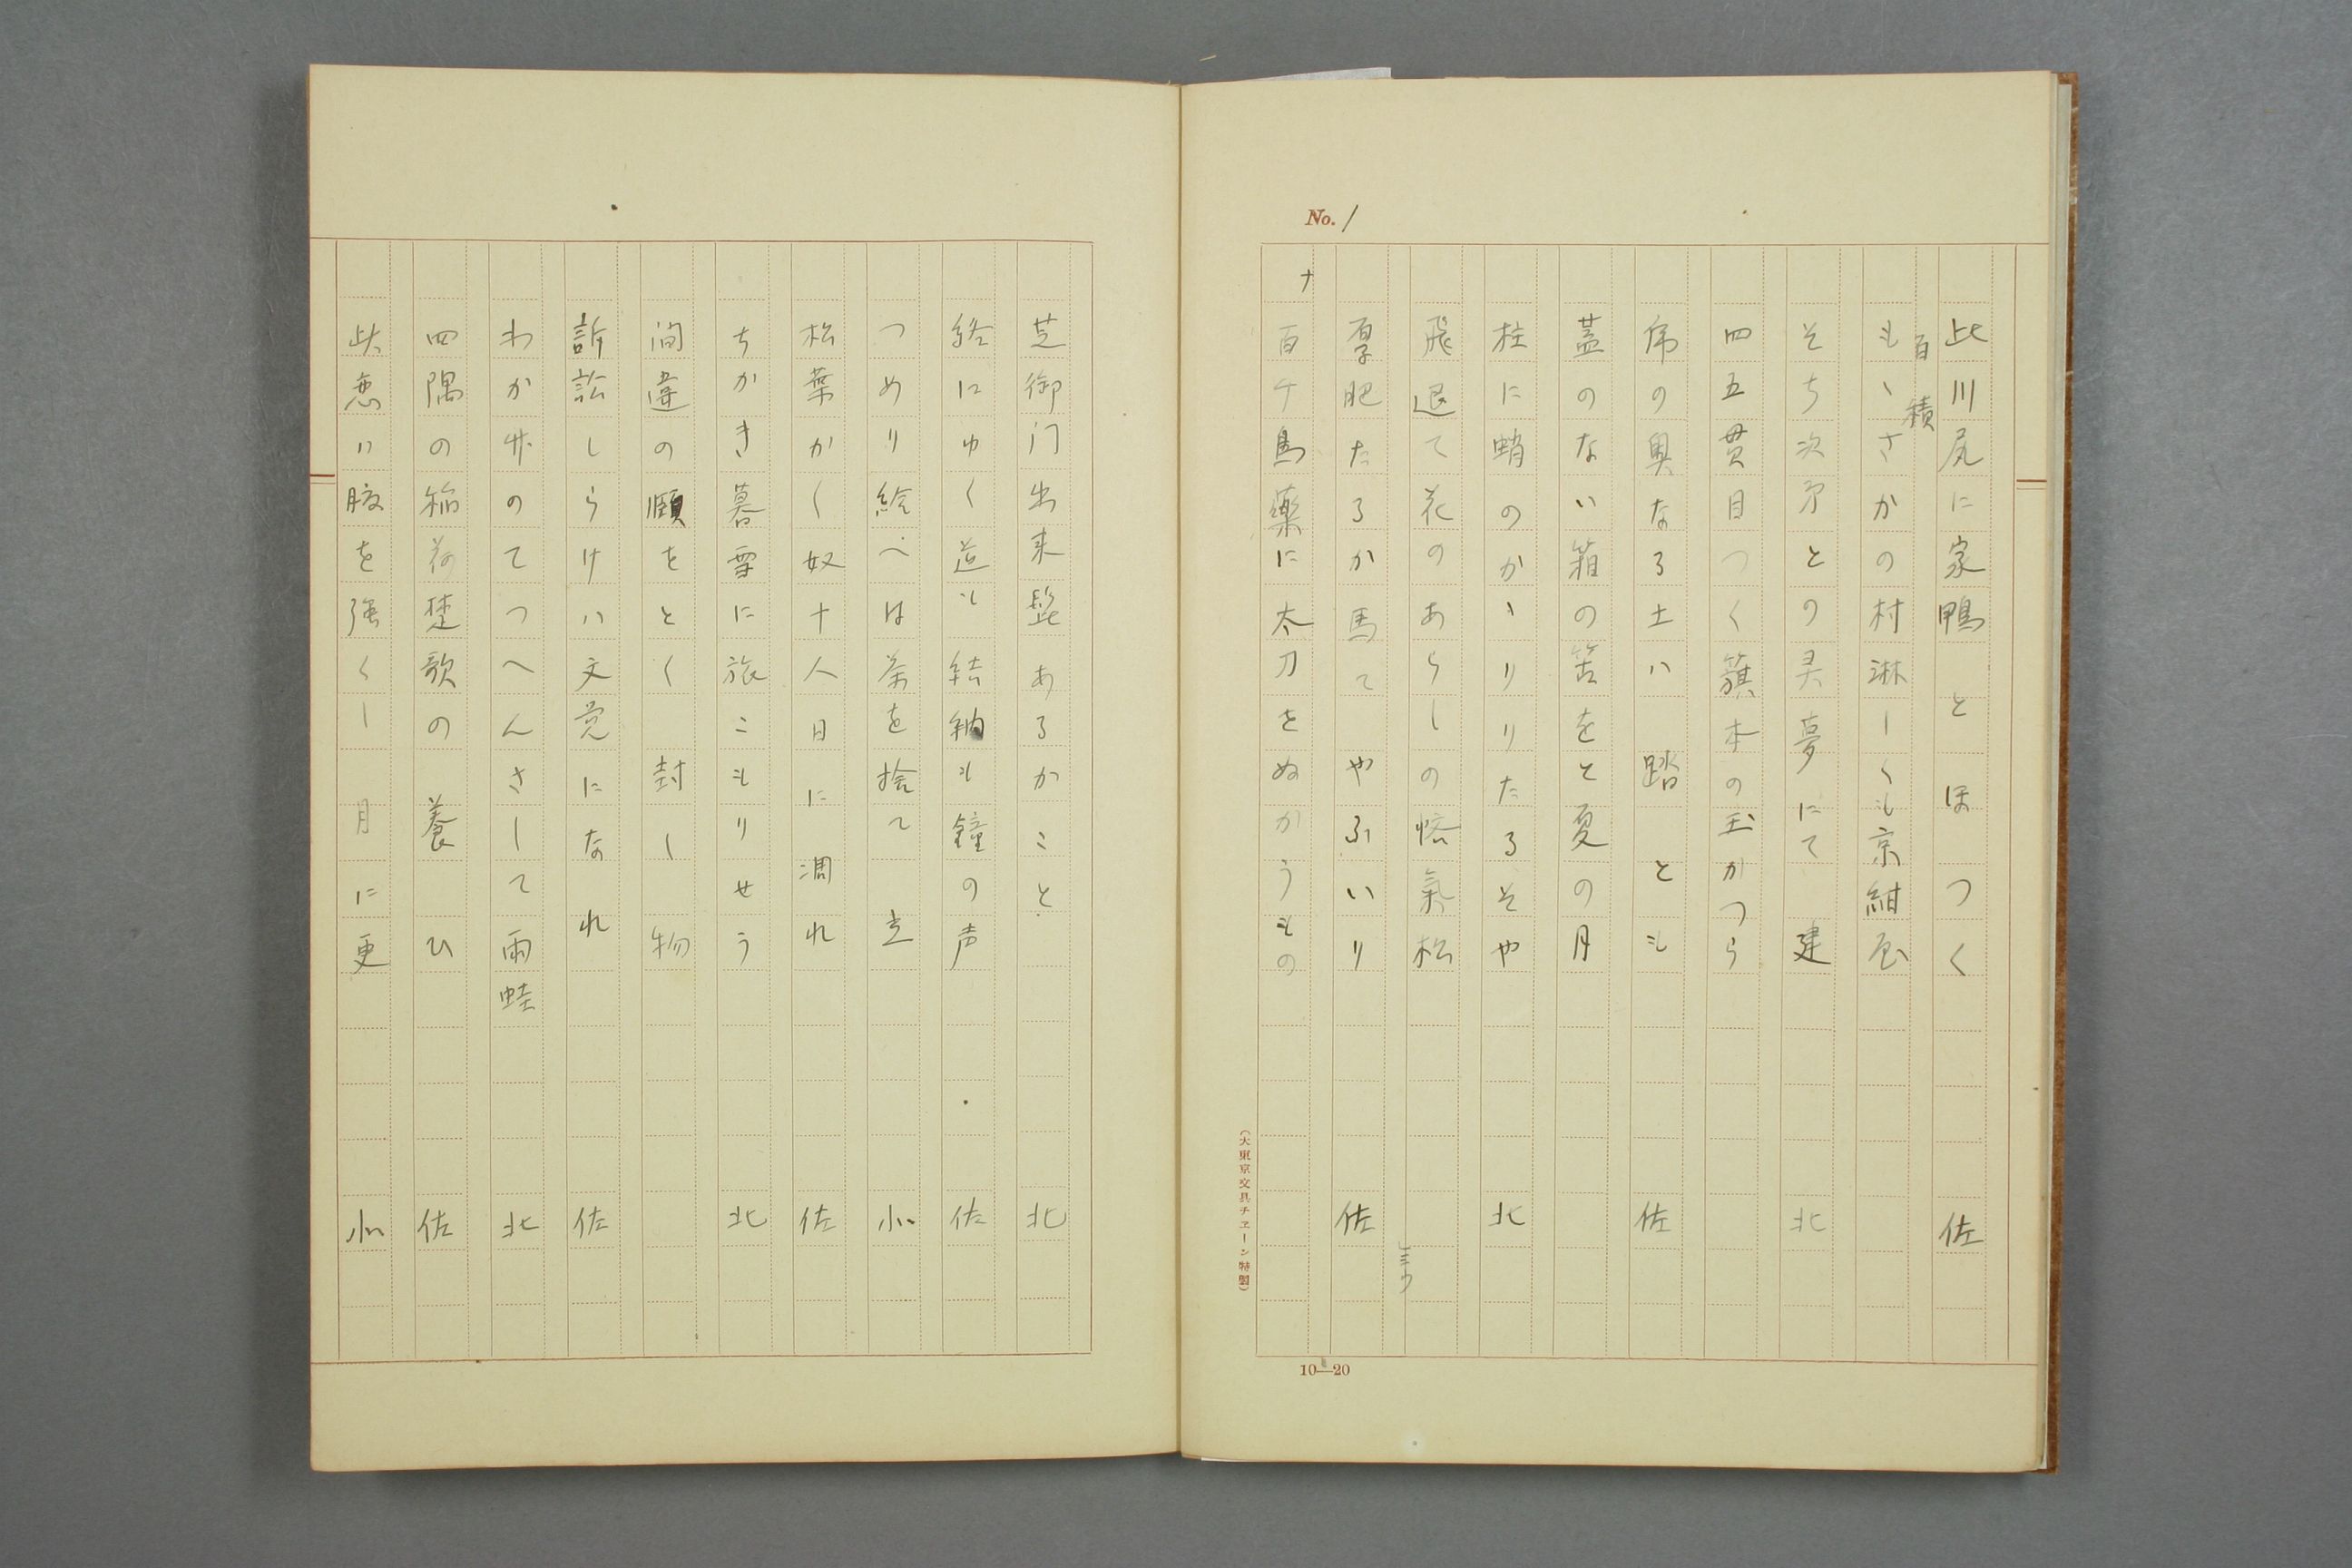 No. 1
此川尻に家鴨とほつく 佐
百積
もゝさかの村淋しくも京紺屋
そち次第との異夢にて建 北
四五貫目つく籏本の玉かつら
帋の奥なる土ハ踏とも 佐
蓋のない箱の筈をと夏の月
柱に蛸のかゝりりたるそや 北
飛退て花のあらしの悋氣松
厚肥たるか馬てやふいり 佐
ナ
百千馬藥に太刀をぬかうもの
(大東京文具チエーン特製)
10—20
芝御门出来髭あるかこと 北
終にゆく道も結納も鐘の声 佐
つめり絵へは茶を捨て立 小
松葉かく奴十人日に凋れ 佐
ちかき暮雪に旅こもりせう 北
间違の願をとく封し物
訴訟しらけハ文覚になれ 佐
わかザのてつへんさして雨蛙 北
四隅の稲荷楚歌の養ひ 佐
此恋ハ腋を強くし月に更 小